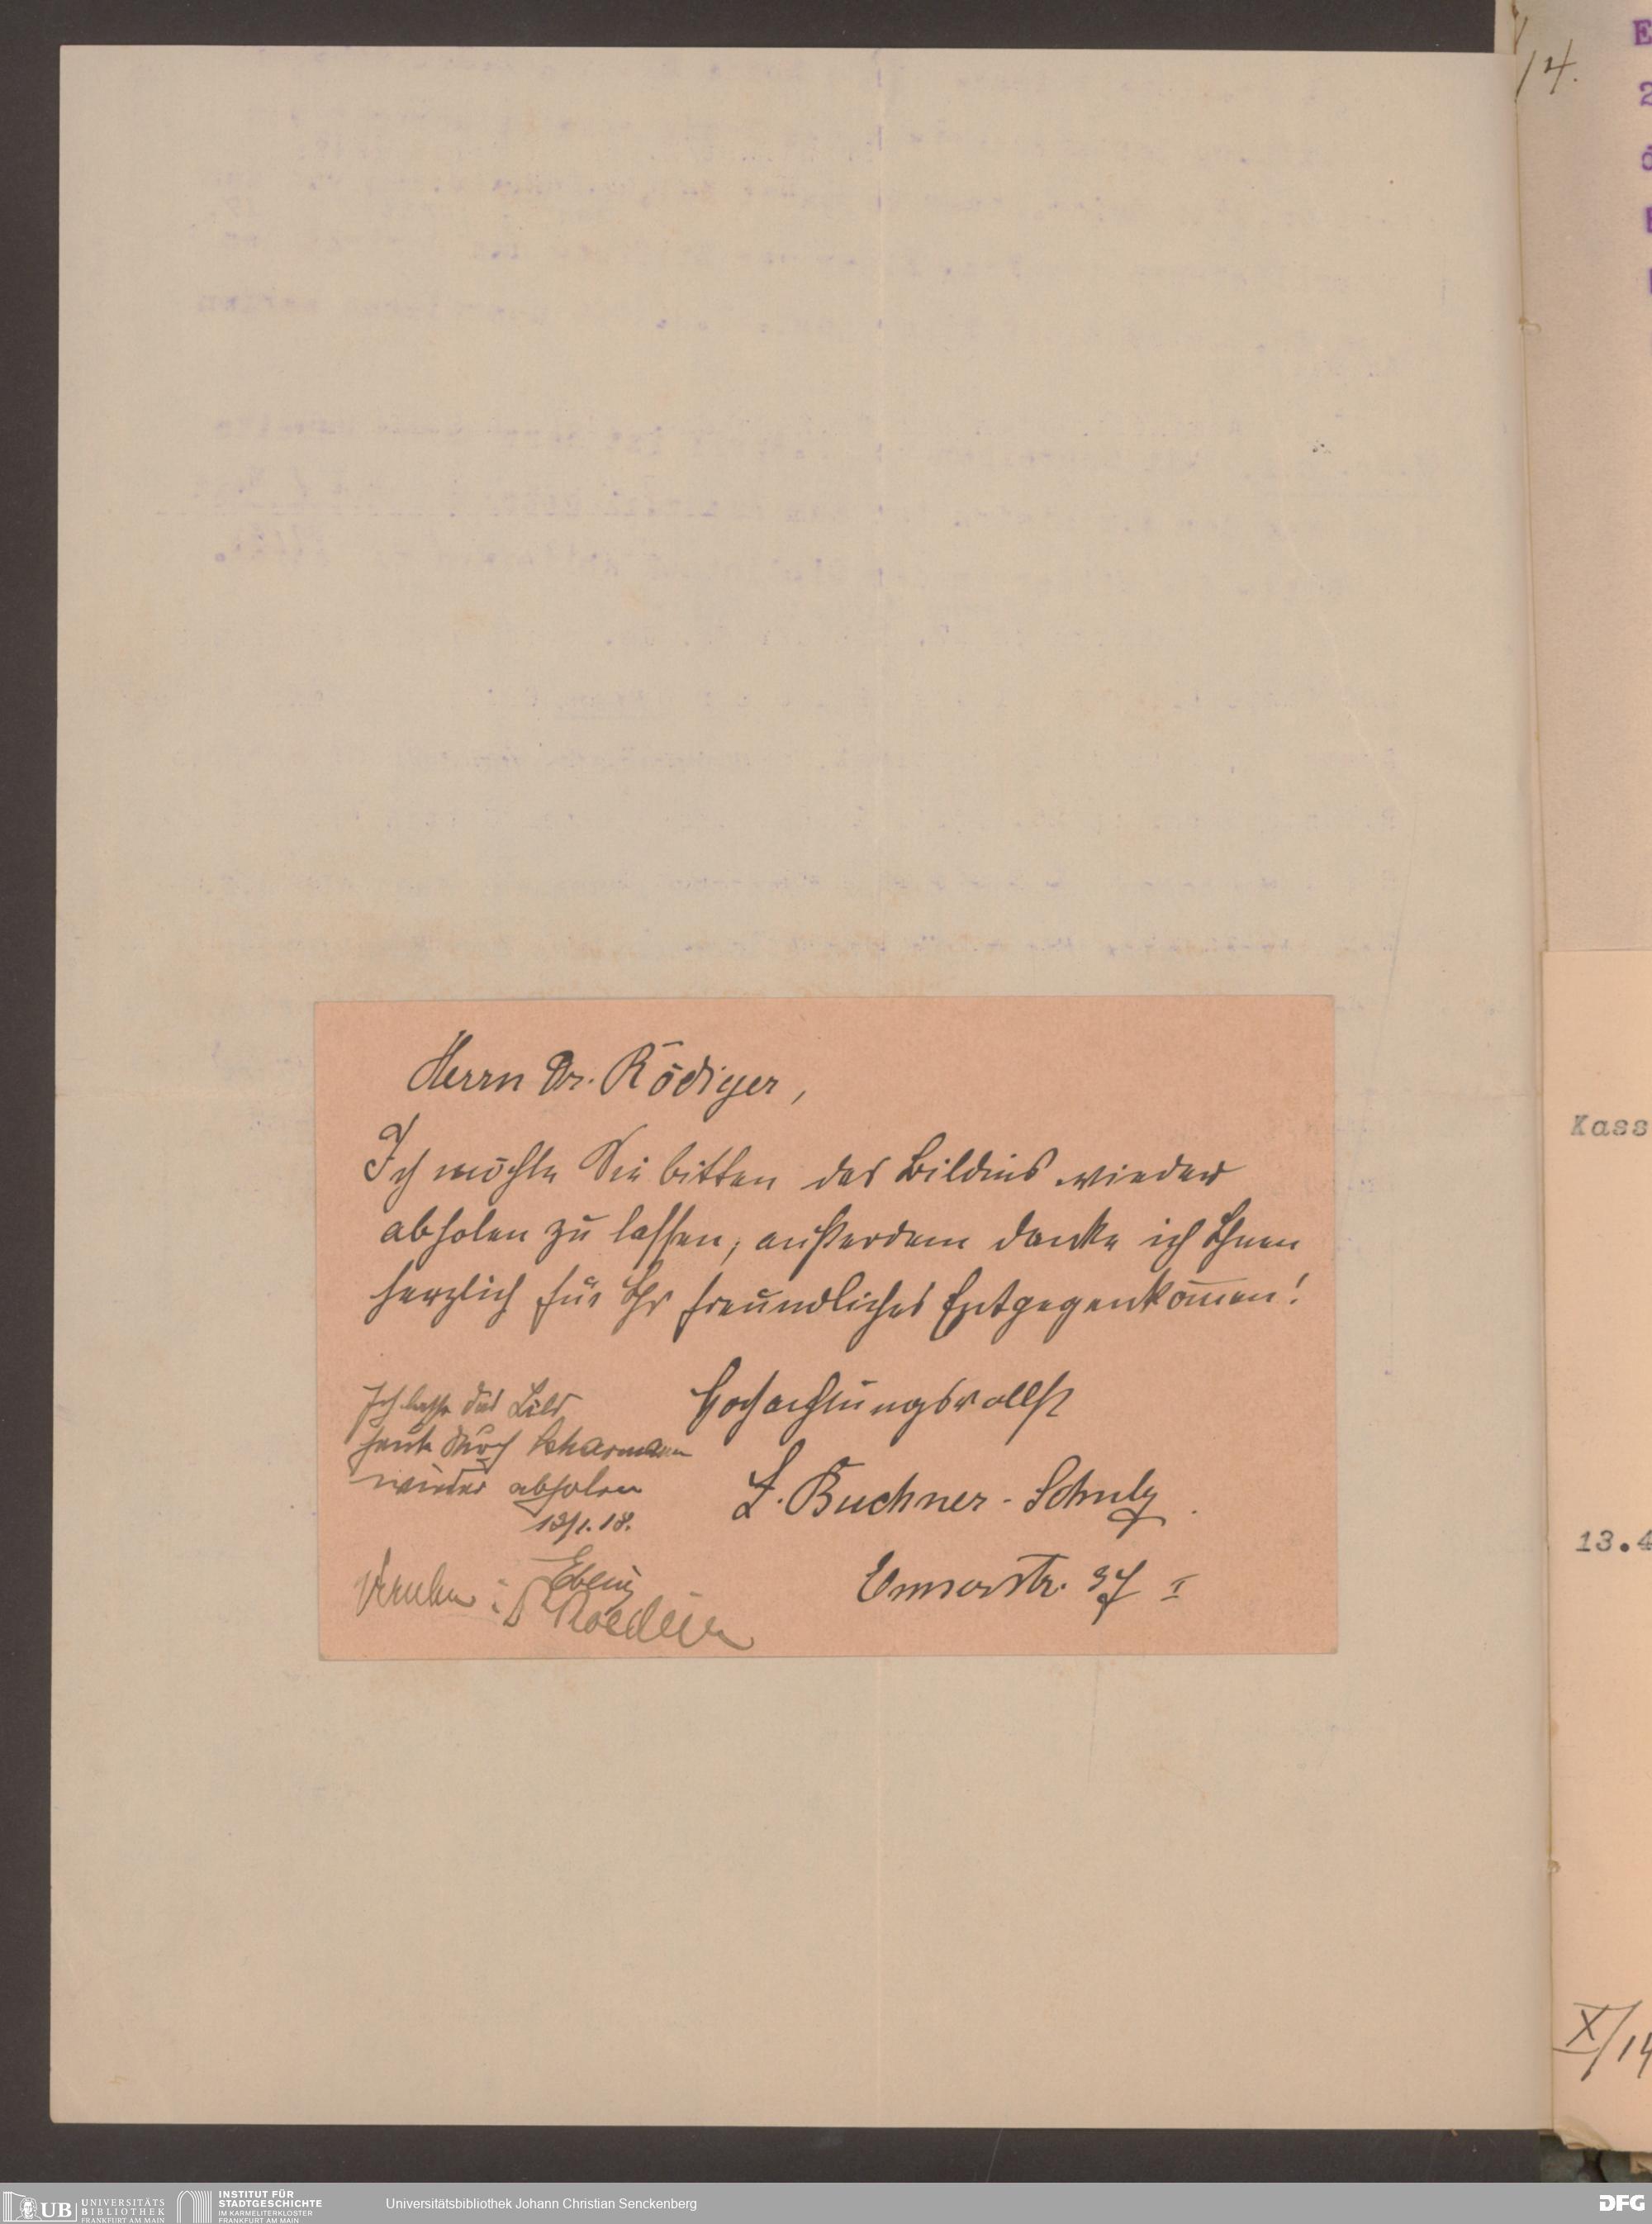 Herrn Dr. Rödiger,
Ich möchte Sie bitten das Bildnis wieder
abholen zu lassen, außerdem danke ich Ihnen
herzlich für Ihr freundliches Entgegenkom̅en!
Hochachtungsvollst
L. Buchner-Schulz.
Emserstr. 37 I
Ich lasse das Bild
heute durch
wieder abholen
13/1.18.
14.
Kass
13.4
X/14
UB UNIVERSITÄTS
BIBLIOTHEK
FRANKFURT AM MAIN
INSTITUT FÜR
STADTGESCHICHTE
IM KARMELITERKLOSTER
FRANKFURT AM MAIN
Universitätsbibliothek Johann Christian Senckenberg
DFG